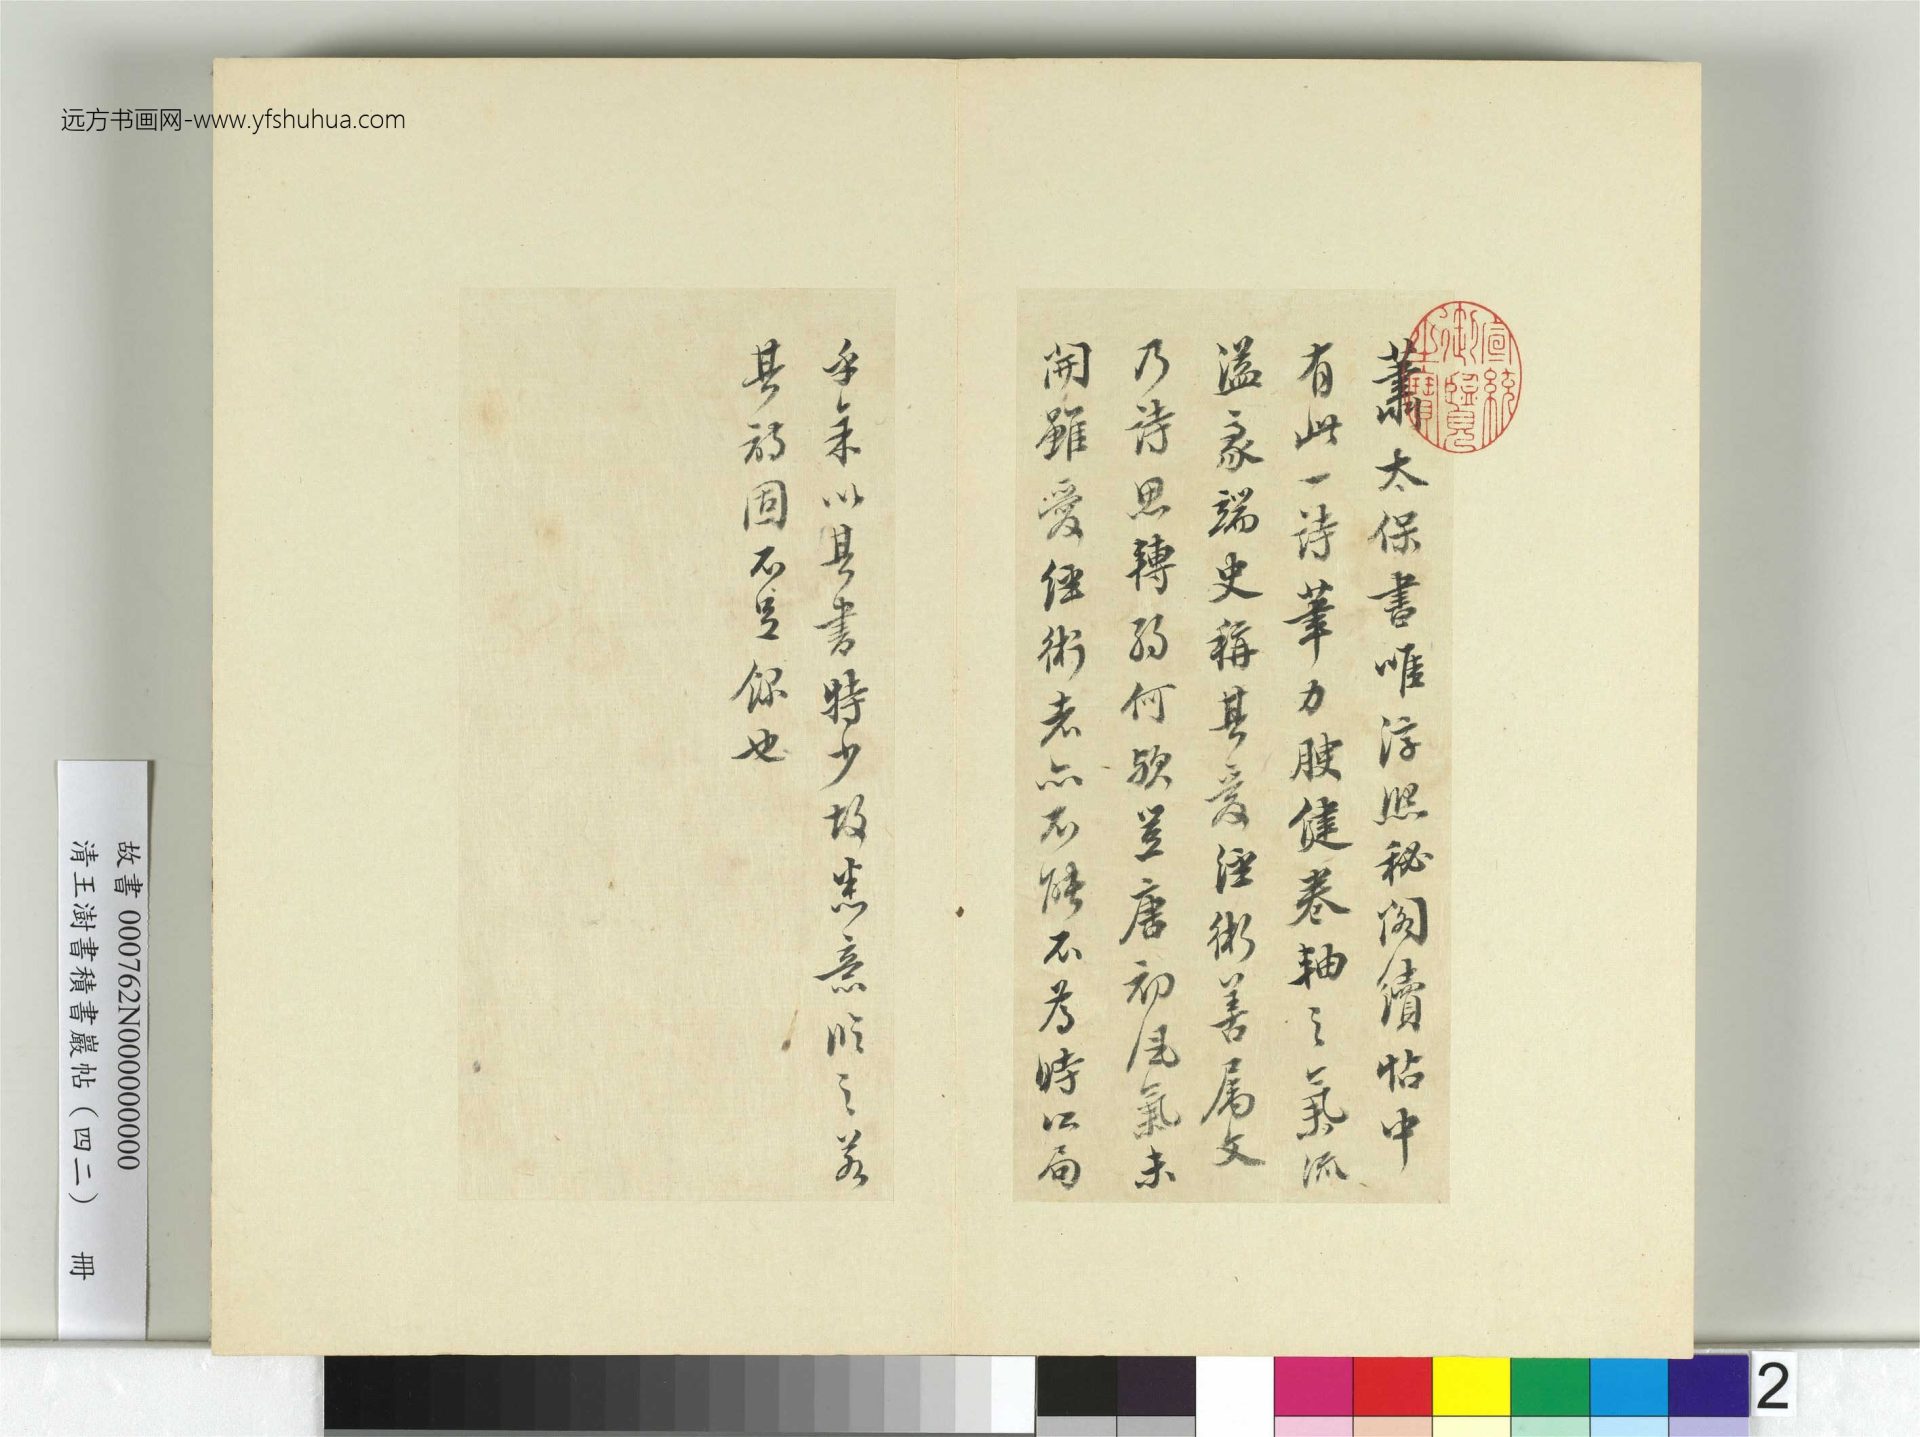 远方书画网-www.yfshuhua.com
宣統御覽之寶
蕭太保書唯淳熙秘閣續帖中
有此一詩筆力腴健卷軸之氣流
溢豪端史稱其愛經術善属文
乃詩思轉弱何歟豈唐初風氣未
開雖愛經術者亦不能不為時所局
乎余以其書特少故悉意臨之若
其詩固不足錄也
故書 000762N000000000
清王澍書積書巖帖(四二) 冊
2